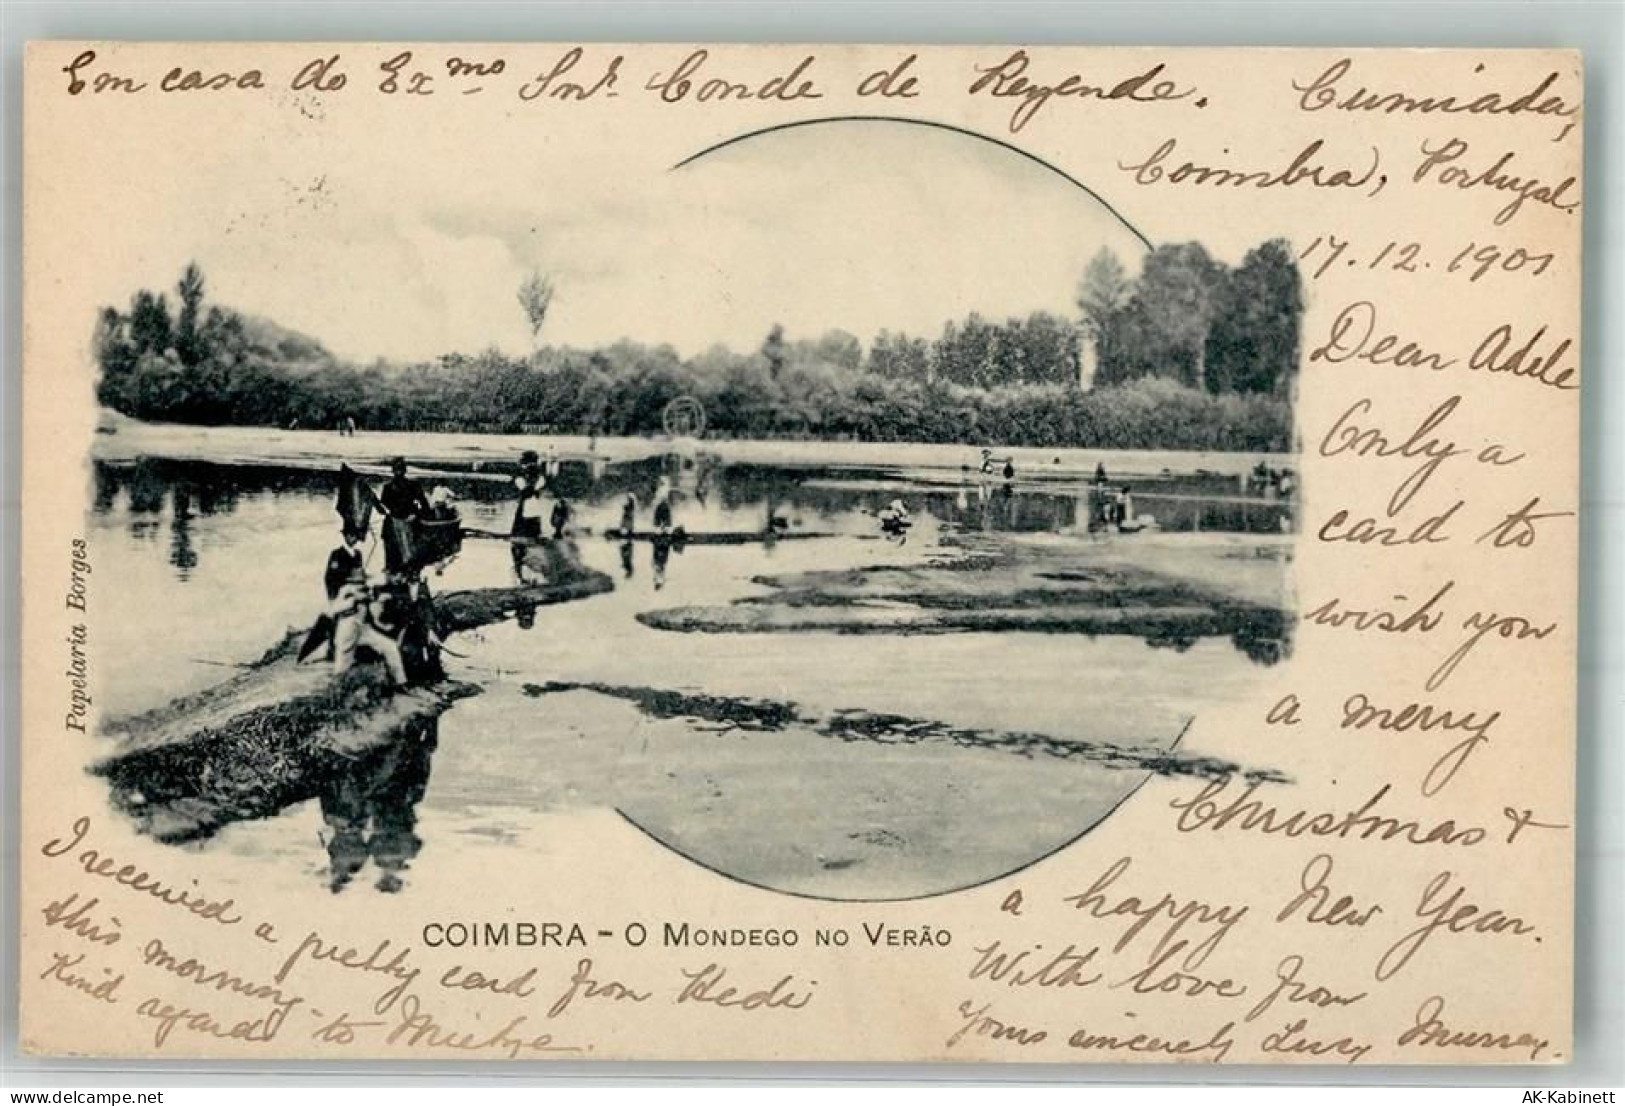 Em casa do Exmo Snr. Conde de Rezende. Cumiada,
Coimbra, Portugal.
17.12.1901
Dear Adele
Only a
card to
wish you
a merry
Christmas &
a happy New Year.
With love from
Yours sincerely Lucy Murray.
I received a pretty card from Hedi
this morning
Kind regards to Mietze.
COIMBRA - O MONDEGO NO VERÃO
Papelaria Borges
delcampe.net
AK-Kabinett